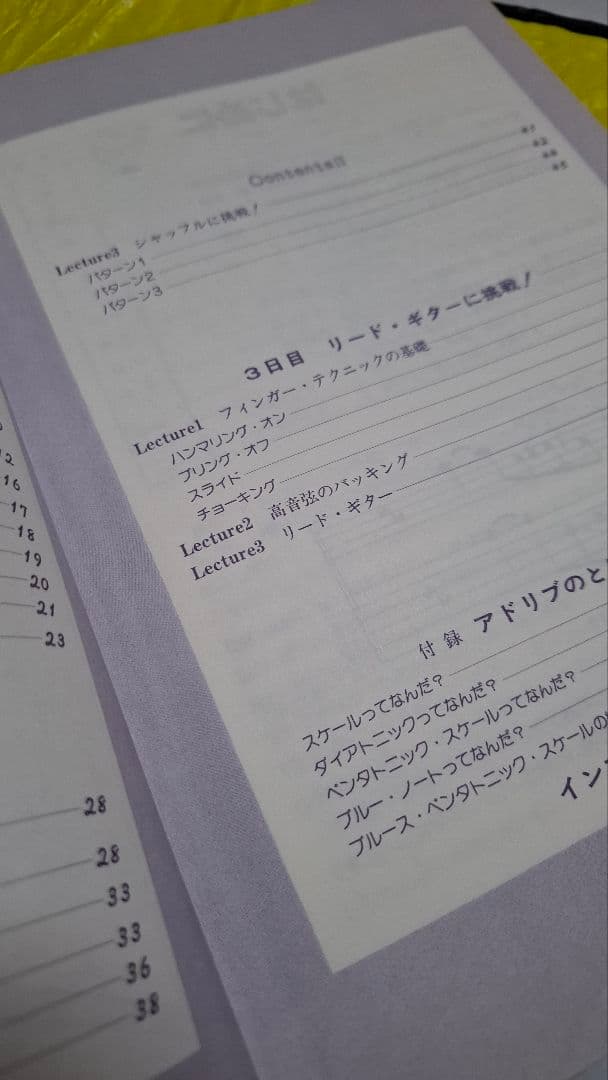 16
17
18
19
20
21
23
28
28
33
33
36
38
はじめに
Contents
Lecture3 シャッフルに挑戦!
パターン1
パターン2
パターン3
3日目 リード・ギターに挑戦!
Lecture1 フィンガー・テクニックの基礎
ハンマリング・オン
プリング・オフ
スライド
チョーキング
Lecture2 高音弦のバッキング
Lecture3 リード・ギター
付録 アドリブのと
スケールってなんだ?
ダイアトニックってなんだ?
ペンタトニック・スケールってなんだ?
ブルー・ノートってなんだ?
ブルース・ペンタトニック・スケールの
イン